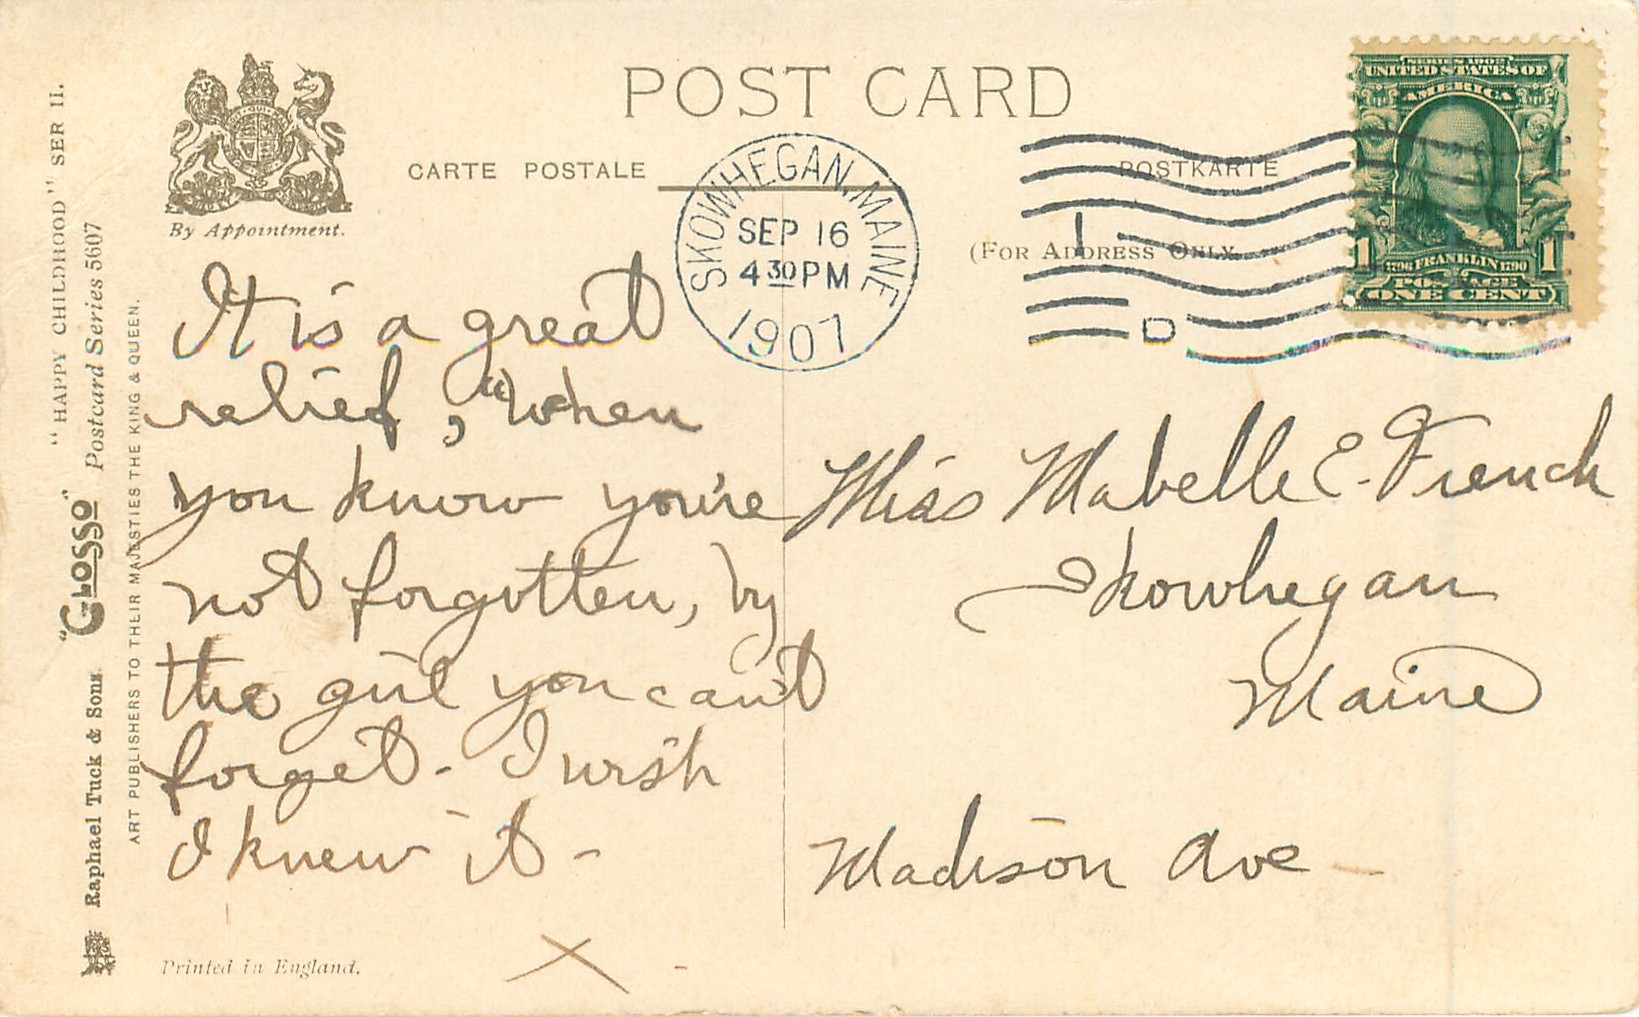 POST CARD
CARTE POSTALE
POSTKARTE
(For Address Only.
By Appointment.
SKOWHEGAN, MAINE
SEP 16
4 30 PM
1907
SERIES 1902
UNITED STATES OF
AMERICA
1 1
1706 FRANKLIN 1790
POSTAGE
ONE CENT
"HAPPY CHILDHOOD" SER II.
"GLOSSO" Postcard Series 5607
Raphael Tuck & Sons
ART PUBLISHERS TO THEIR MAJESTIES THE KING & QUEEN.
It is a great
relief, "when
you know you're
not forgotten, by
the girl you can't
forget - I wish
I knew it -
X -
Miss Mabelle E. French
Skowhegan
Maine
Madison Ave -
Printed in England.